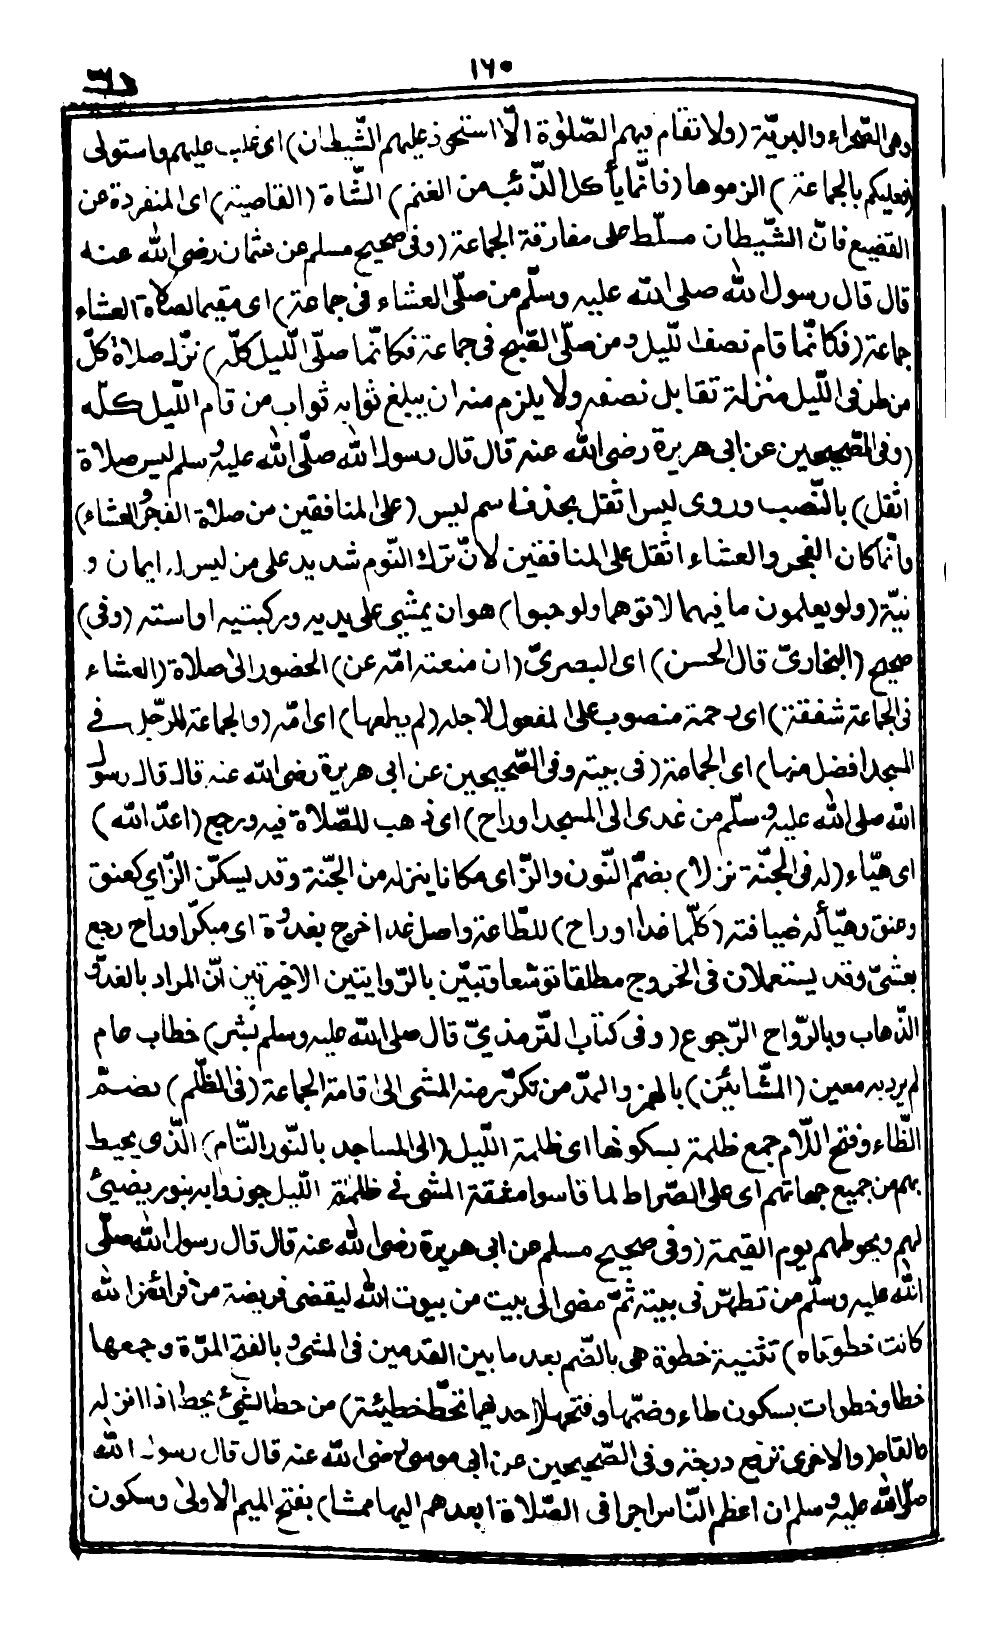 ١٦٠
وهى الصّحراء والبريّة (ولا تقام فيهم الصّلوة الّا استحوذ عليهم الشّيطان) اى غلب عليهم واستولى
(فعليكم بالجماعة) الزموها (فانّما يأكل الذّئب من الغنم) الشّاة (القاصية) اى المنفردة عن
القطيع فانّ الشّيطان مسلّط على مفارقة الجماعة (وفى صحيح مسلم عن عثمان رضى الله عنه
قال قال رسول الله صلى الله عليه وسلّم من صلّى العشاء فى جماعة) اى مقيما لصلاة العشاء
جماعة (فكانّما قام نصف اللّيل ومن صلّى الصّبح فى جماعة فكانّما صلّى اللّيل كلّه) نزّل صلاة كلّ
من طرفى اللّيل منزلة تقابل نصفه ولا يلزم منه ان يبلغ ثوابه ثواب من قام اللّيل كلّه
(وفى الصّحيحين عن ابى هريرة رضى الله عنه قال قال رسول الله صلّى الله عليه وسلم ليس صلاة
اثقل) بالنّصب وروى ليس اثقل بحذف اسم ليس (على المنافقين من صلاة الفجر والعشاء)
وانّما كان الفجر والعشاء اثقل على المنافقين لانّ ترك النّوم شديد على من ليس له ايمان و
نيّة (ولو يعلمون ما فيهما لاتوهما ولو حبوا) هو ان يمشى على يديه وركبتيه او استه (وفى)
صحيح (البخارىّ قال الحسن) اى البصرىّ (ان منعته امّه عن) الحضور الى صلاة (العشاء
فى الجماعة شفقة) اى رحمة منصوب على المفعول لاجله (لم يطعها) اى امّه (والجماعة للرّجل فى
المسجد افضل منها) اى الجماعة (فى بيته وفى الصّحيحين عن ابى هريرة رضى الله عنه قال قال رسول
الله صلى الله عليه وسلّم من غدى الى المسجد او راح) اى ذهب للصّلاة فيه ورجع (اعدّ الله)
اى هيّاء (له فى الجنّة نزلا) بضمّ النّون والزّاى مكانا ينزله من الجنّة وقد يسكّن الزّاي كعنق
وعنق وهيّأ له ضيافته (كلّما غدا او راح) للطّاعة واصل غدا خرج بغدوة اى مبكرا وراح رجع
بعشىّ وقد يستعملان فى الخروج مطلقا توسّعا وتبيّن بالرّوايتين الاخيرتين انّ المراد بالغدوّ
الذّهاب وبالرّواح الرّجوع (وفى كتاب التّرمذيّ قال صلى الله عليه وسلم بشّر) خطاب عام
لم يرد به معين (المشّائين) بالهمز والمدّ من تكرّر منه المشى الى اقامة الجماعة (فى الظّلم) بضمّ
الظّاء وفتح اللّام جمع ظلمة بسكونها اى ظلمة اللّيل (الى المساجد بالنّور التّام) الّذى يحيط
بهم من جميع جهاتهم اى على الصّراط لما قاسوا مشقة المشى فى ظلمة اللّيل جوزوا بنور يضيئ
لهم ويحوطهم يوم القيمة (وفى صحيح مسلم عن ابى هريرة رضى الله عنه قال قال رسول الله صلّى
الله عليه وسلّم من تطهّر فى بيته ثمّ مضى الى بيت من بيوت الله ليقضى فريضة من فرائض الله
كانت خطوتاه) تثنية خطوة هى بالضّم بعد ما بين القدمين فى المشى و بالفتح المرّة وجمعها
خطا وخطوات بسكون طاء وضمّها وفتحها (احديهما تحطّ خطيئة) من حط الشّيئ يحط اذا انزله
والقاه (والاخرى ترفع درجة وفى الصّحيحين عن ابى موسى رضى الله عنه قال قال رسول الله
صلّى الله عليه وسلم ان اعظم النّاس اجرا فى الصّلاة ابعدهم اليها ممشا) بفتح الميم الاولى وسكون